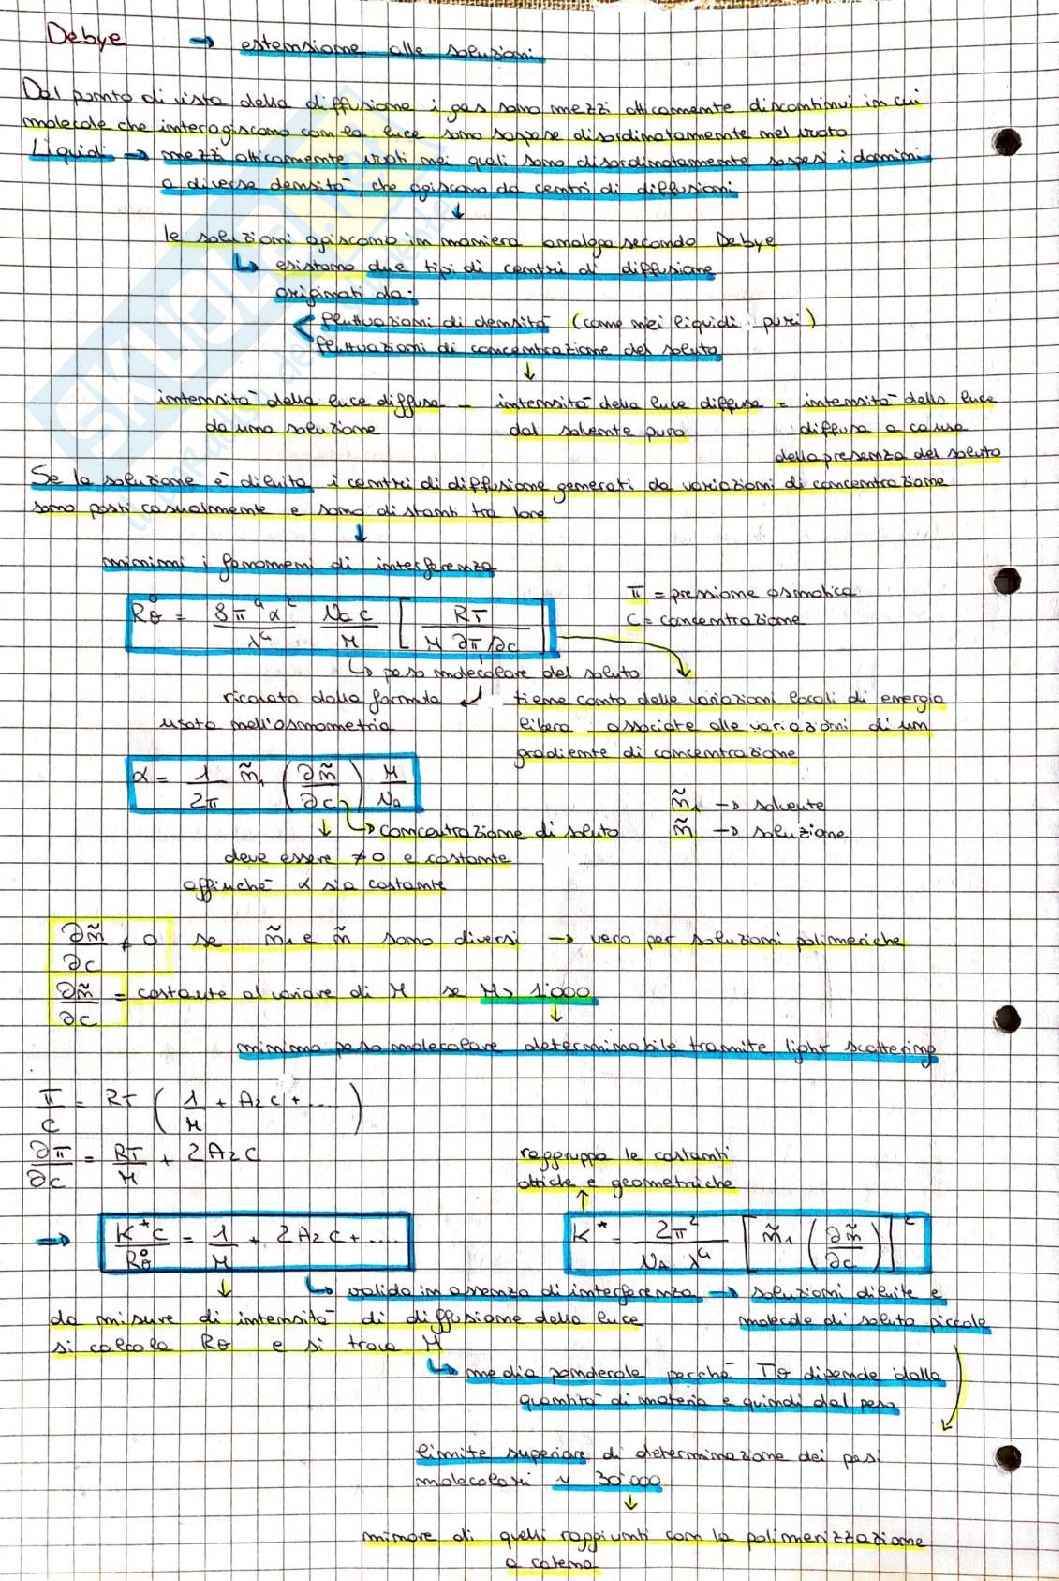 Debye → estensione alle soluzioni
Dal punto di vista della diffusione i gas sono mezzi otticamente discontinui in cui
molecole che interagiscono con la luce sono sospese disordinatamente nel vuoto
Liquidi → mezzi otticamente vuoti nei quali sono disordinatamente sospesi i domini
a diversa densità che agiscono da centri di diffusioni
↓
le soluzioni agiscono in maniera analoga secondo Debye
↳ esistono due tipi di centri di diffusione
originati da:
fluttuazioni di densità (come nei liquidi puri)
fluttuazioni di concentrazione del soluto
↓
intensità della luce diffusa - intensità della luce diffusa = intensità della luce
da una soluzione dal solvente puro diffusa a causa
della presenza del soluto
Se la soluzione è diluita i centri di diffusione generati da variazioni di concentrazione
sono posti casualmente e sono distanti tra loro
↓
minimi i fenomeni di interferenza
R°θ = 8π⁴α²/λ⁴ Nc c/M [RT / M ∂π/∂c]
π = pressione osmotica
C = concentrazione
↳ peso molecolare del soluto
ricavato dalla formula ↙ tiene conto delle variazioni locali di energia
usata nell'osmometria libera associate alle variazioni di un
gradiente di concentrazione
α = 1/2π ñ₁ (∂ñ/∂c) M/NA
ñ₁ → solvente
↳ concentrazione di soluto ñ → soluzione
deve essere ≠0 e costante
affinché α sia costante
∂ñ/∂c ≠ 0 se ñ₁ e ñ sono diversi → vero per soluzioni polimeriche
∂ñ/∂c = costante al variare di M se M> 1'000
↓
minimo peso molecolare determinabile tramite light scattering
π/c = RT (1/M + A₂c + ...)
∂π/∂c = RT/M + 2A₂c
raggruppa le costanti
ottiche e geometriche
→ K*c/R°θ = 1/M + 2A₂c + .... K* = 2π²/NA λ⁴ [ñ₁ (∂ñ/∂c)]²
↳ valida in assenza di interferenza → soluzioni diluite e
da misure di intensità di diffusione della luce molecole di soluto piccole
si calcola Rθ e si trova M
↳ media ponderale perché Iθ dipende dalla
quantità di materia e quindi dal peso
limite superiore di determinazione dei pesi
molecolari ~ 30'000
↓
minore di quelli raggiunti con la polimerizzazione
a catena